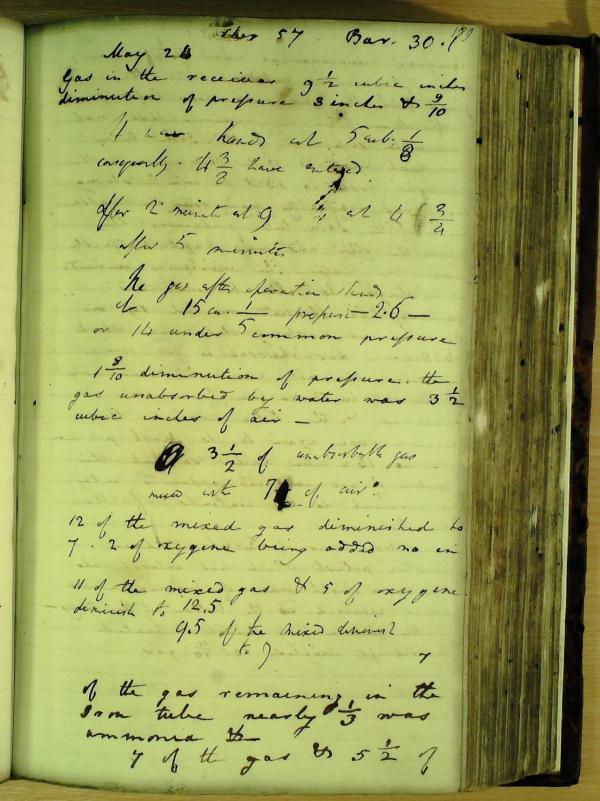 Ther 57 Bar. 30.
May 24
Gas in the receiver 9 1/2 cubic inches
diminution of pressure 3 inches & 9/10
stands at 5 cub. 1/8
4 3/8 have entered
After 2 minutes at 9 at 4 3/4
after 5 minutes
The gas after operation stands
at 15 cu. 1/5 pressure - 2.6 -
or 14 under common pressure
1 8/10 diminution of pressure. the
gas unabsorbed by water was 3 1/2
cubic inches of air -
3 1/2 of unabsorbable gas
mixed with 7 of air.
12 of the mixed gas diminished to
7. 2 of oxygene being added no in
11 of the mixed gas & 5 of oxygene
diminish to 12.5
9.5 of the mixed diminish
to 7
7
of the gas remaining in the
Iron tube nearly 1/3 was
ammonia &-
7 of the gas & 5 1/2 of